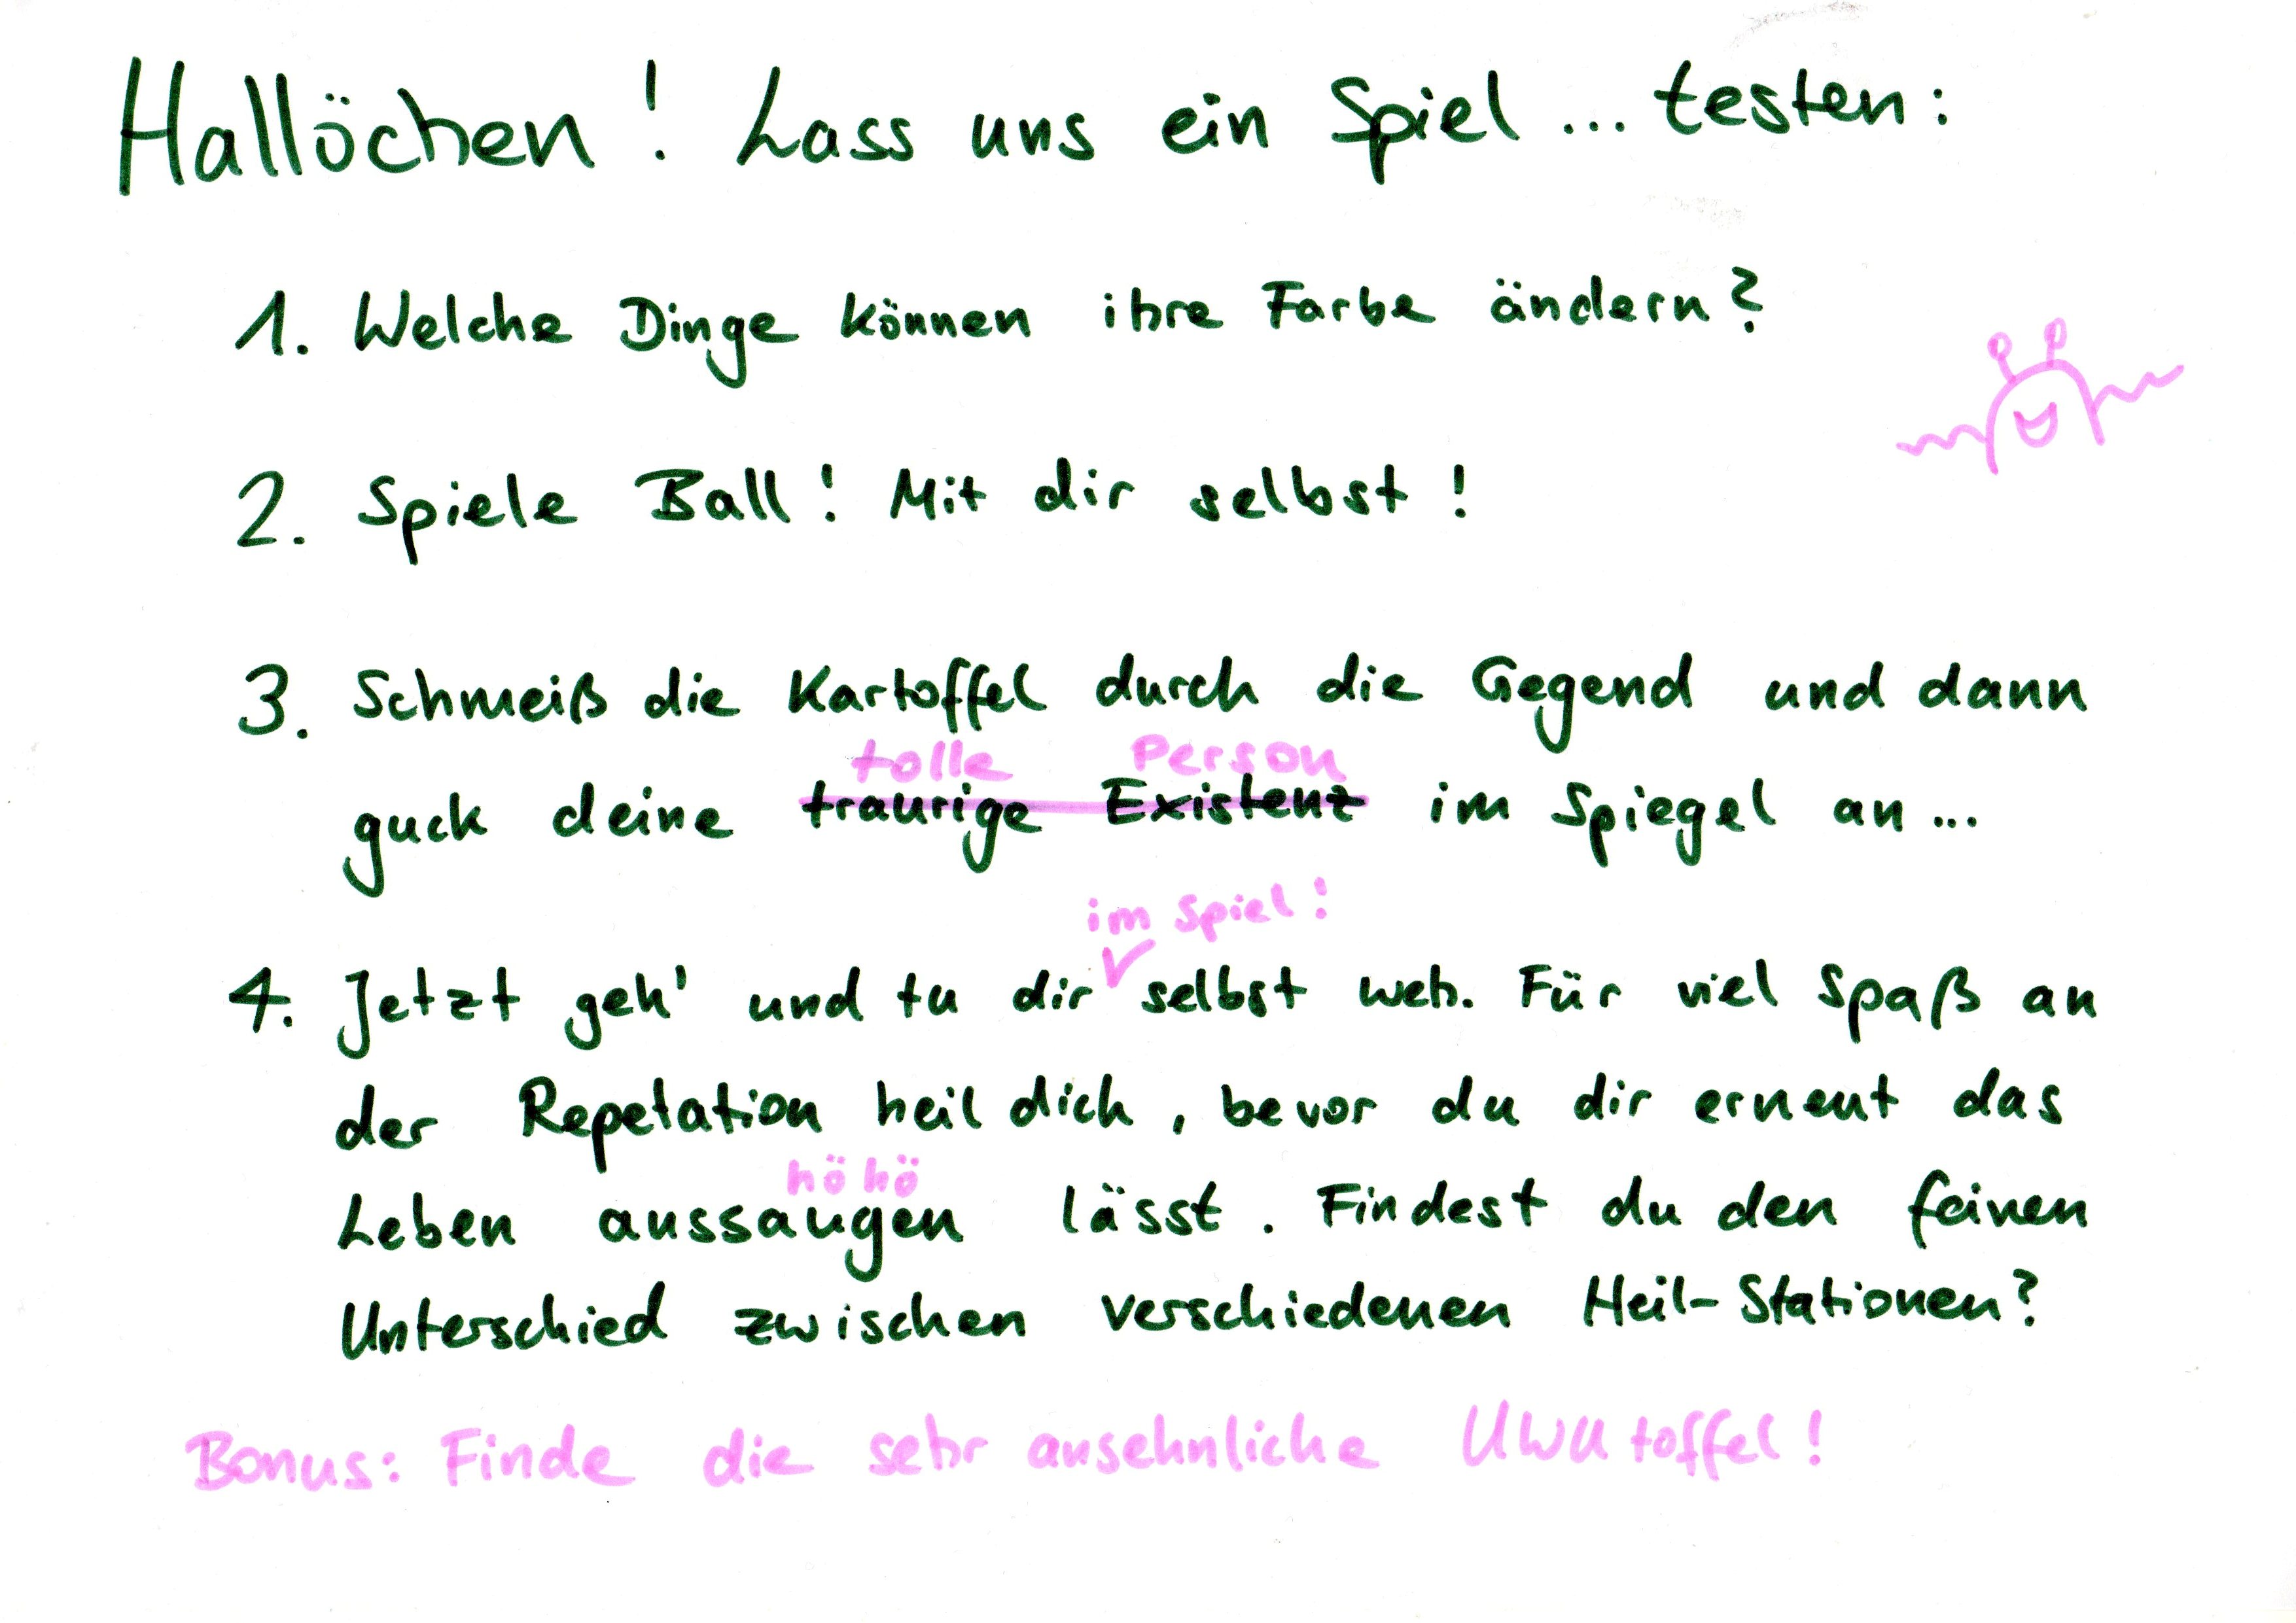 Hallöchen! Lass uns ein Spiel... testen:
1. Welche Dinge können ihre Farbe ändern?
2. Spiele Ball! Mit dir selbst!
3. Schmeiß die Kartoffel durch die Gegend und dann
tolle Person
guck deine traurige Existenz im Spiegel an...
im Spiel!
4. Jetzt geh' und tu dir selbst weh. Für viel Spaß an
der Repetation heil dich, bevor du dir erneut das
höhö
Leben aussaugen lässt. Findest du den feinen
Unterschied zwischen verschiedenen Heil-Stationen?
Bonus: Finde die sehr ansehnliche UWUtoffel!